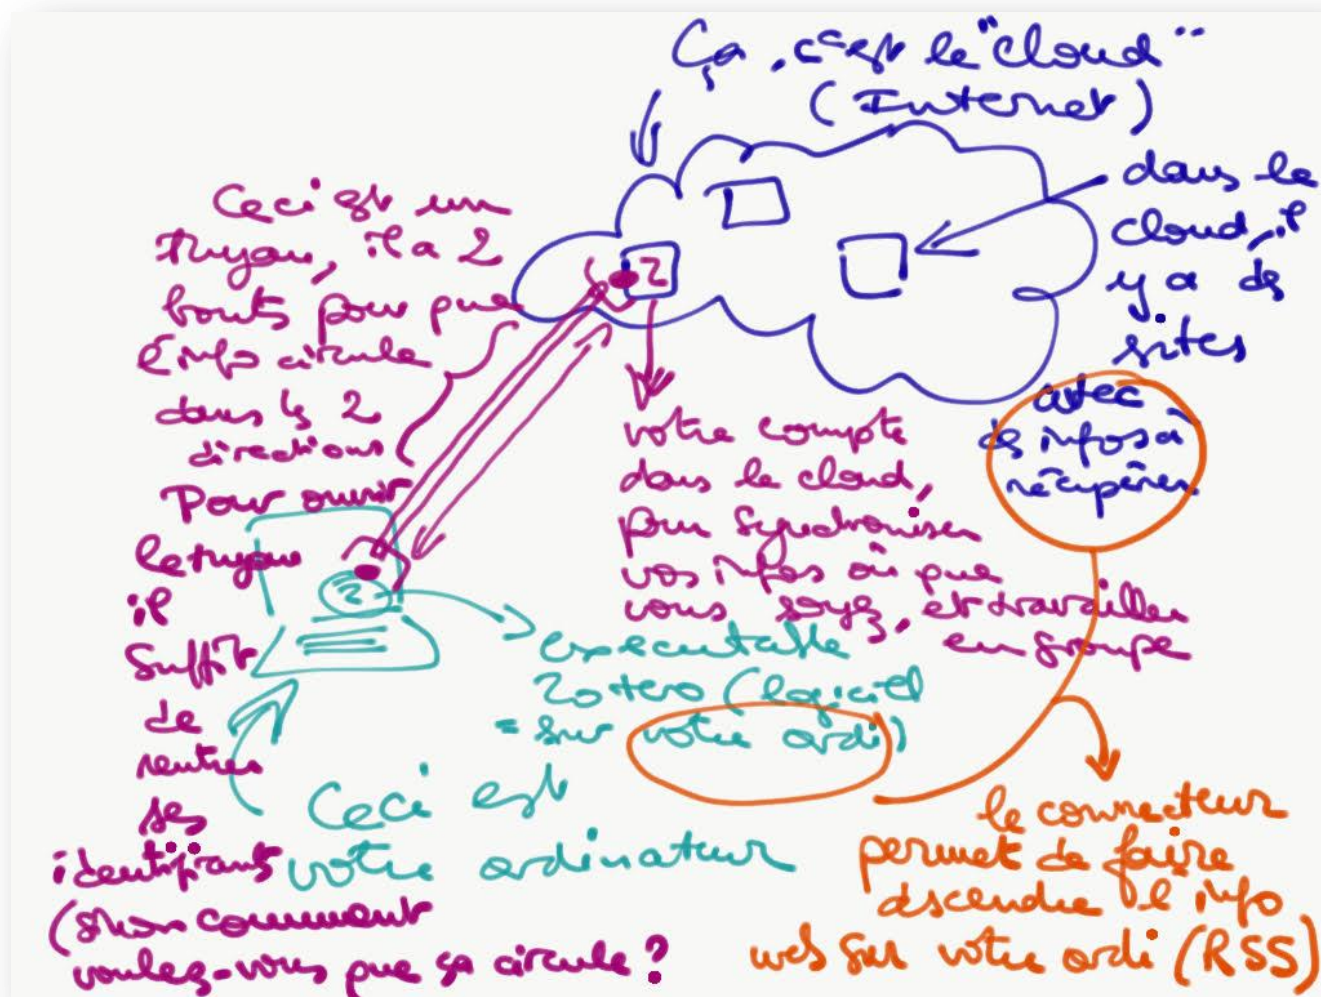 Ça, c'est le "cloud"
(Internet)
dans le
cloud, il
y a des
sites
avec
des infos à
récupérer
Ceci est un
tuyau, il a 2
bouts pour que
l'info circule
dans les 2
directions
Pour ouvrir
le tuyau
il
suffit
de
rentrer
ses
identifiants
(sinon comment
voulez-vous que ça circule?
Z
votre compte
dans le cloud,
pour synchroniser
vos infos où que
vous soyez, et travailler
en groupe
Z
executable
Zotero (logiciel
= sur votre ordi)
Ceci est
votre ordinateur
le connecteur
permet de faire
descendre l'info
web sur votre ordi (RSS)